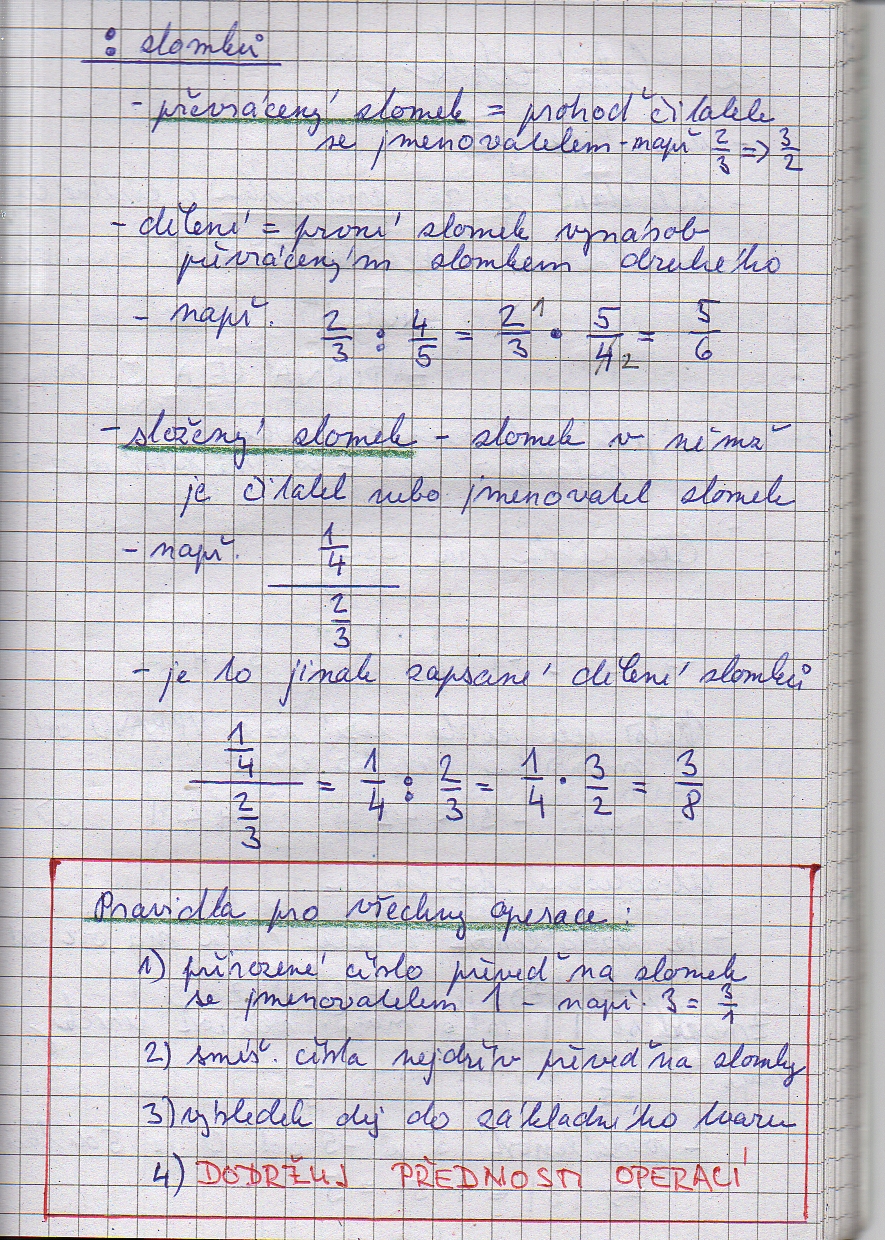 : zlomků
- převrácený zlomek = prohoď čitatele
se jmenovatelem - např 2/3 => 3/2
- dělení = první zlomek vynásob
převráceným zlomkem druhého
- např. 2/3 : 4/5 = 2/3 1 · 5/4 2 = 5/6
- složený zlomek - zlomek v němž
je čitatel nebo jmenovatel zlomek
- např. 1/4 / 2/3
- je to jinak zapsané dělení zlomků
1/4 / 2/3 = 1/4 : 2/3 = 1/4 · 3/2 = 3/8
Pravidla pro všechny operace:
1) přirozené číslo převeď na zlomek
se jmenovatelem 1 - např. 3 = 3/1
2) smíš. čísla nejdřív převeď na zlomky
3) výsledek dej do základního tvaru
4) DODRŽUJ PŘEDNOSTI OPERACÍ